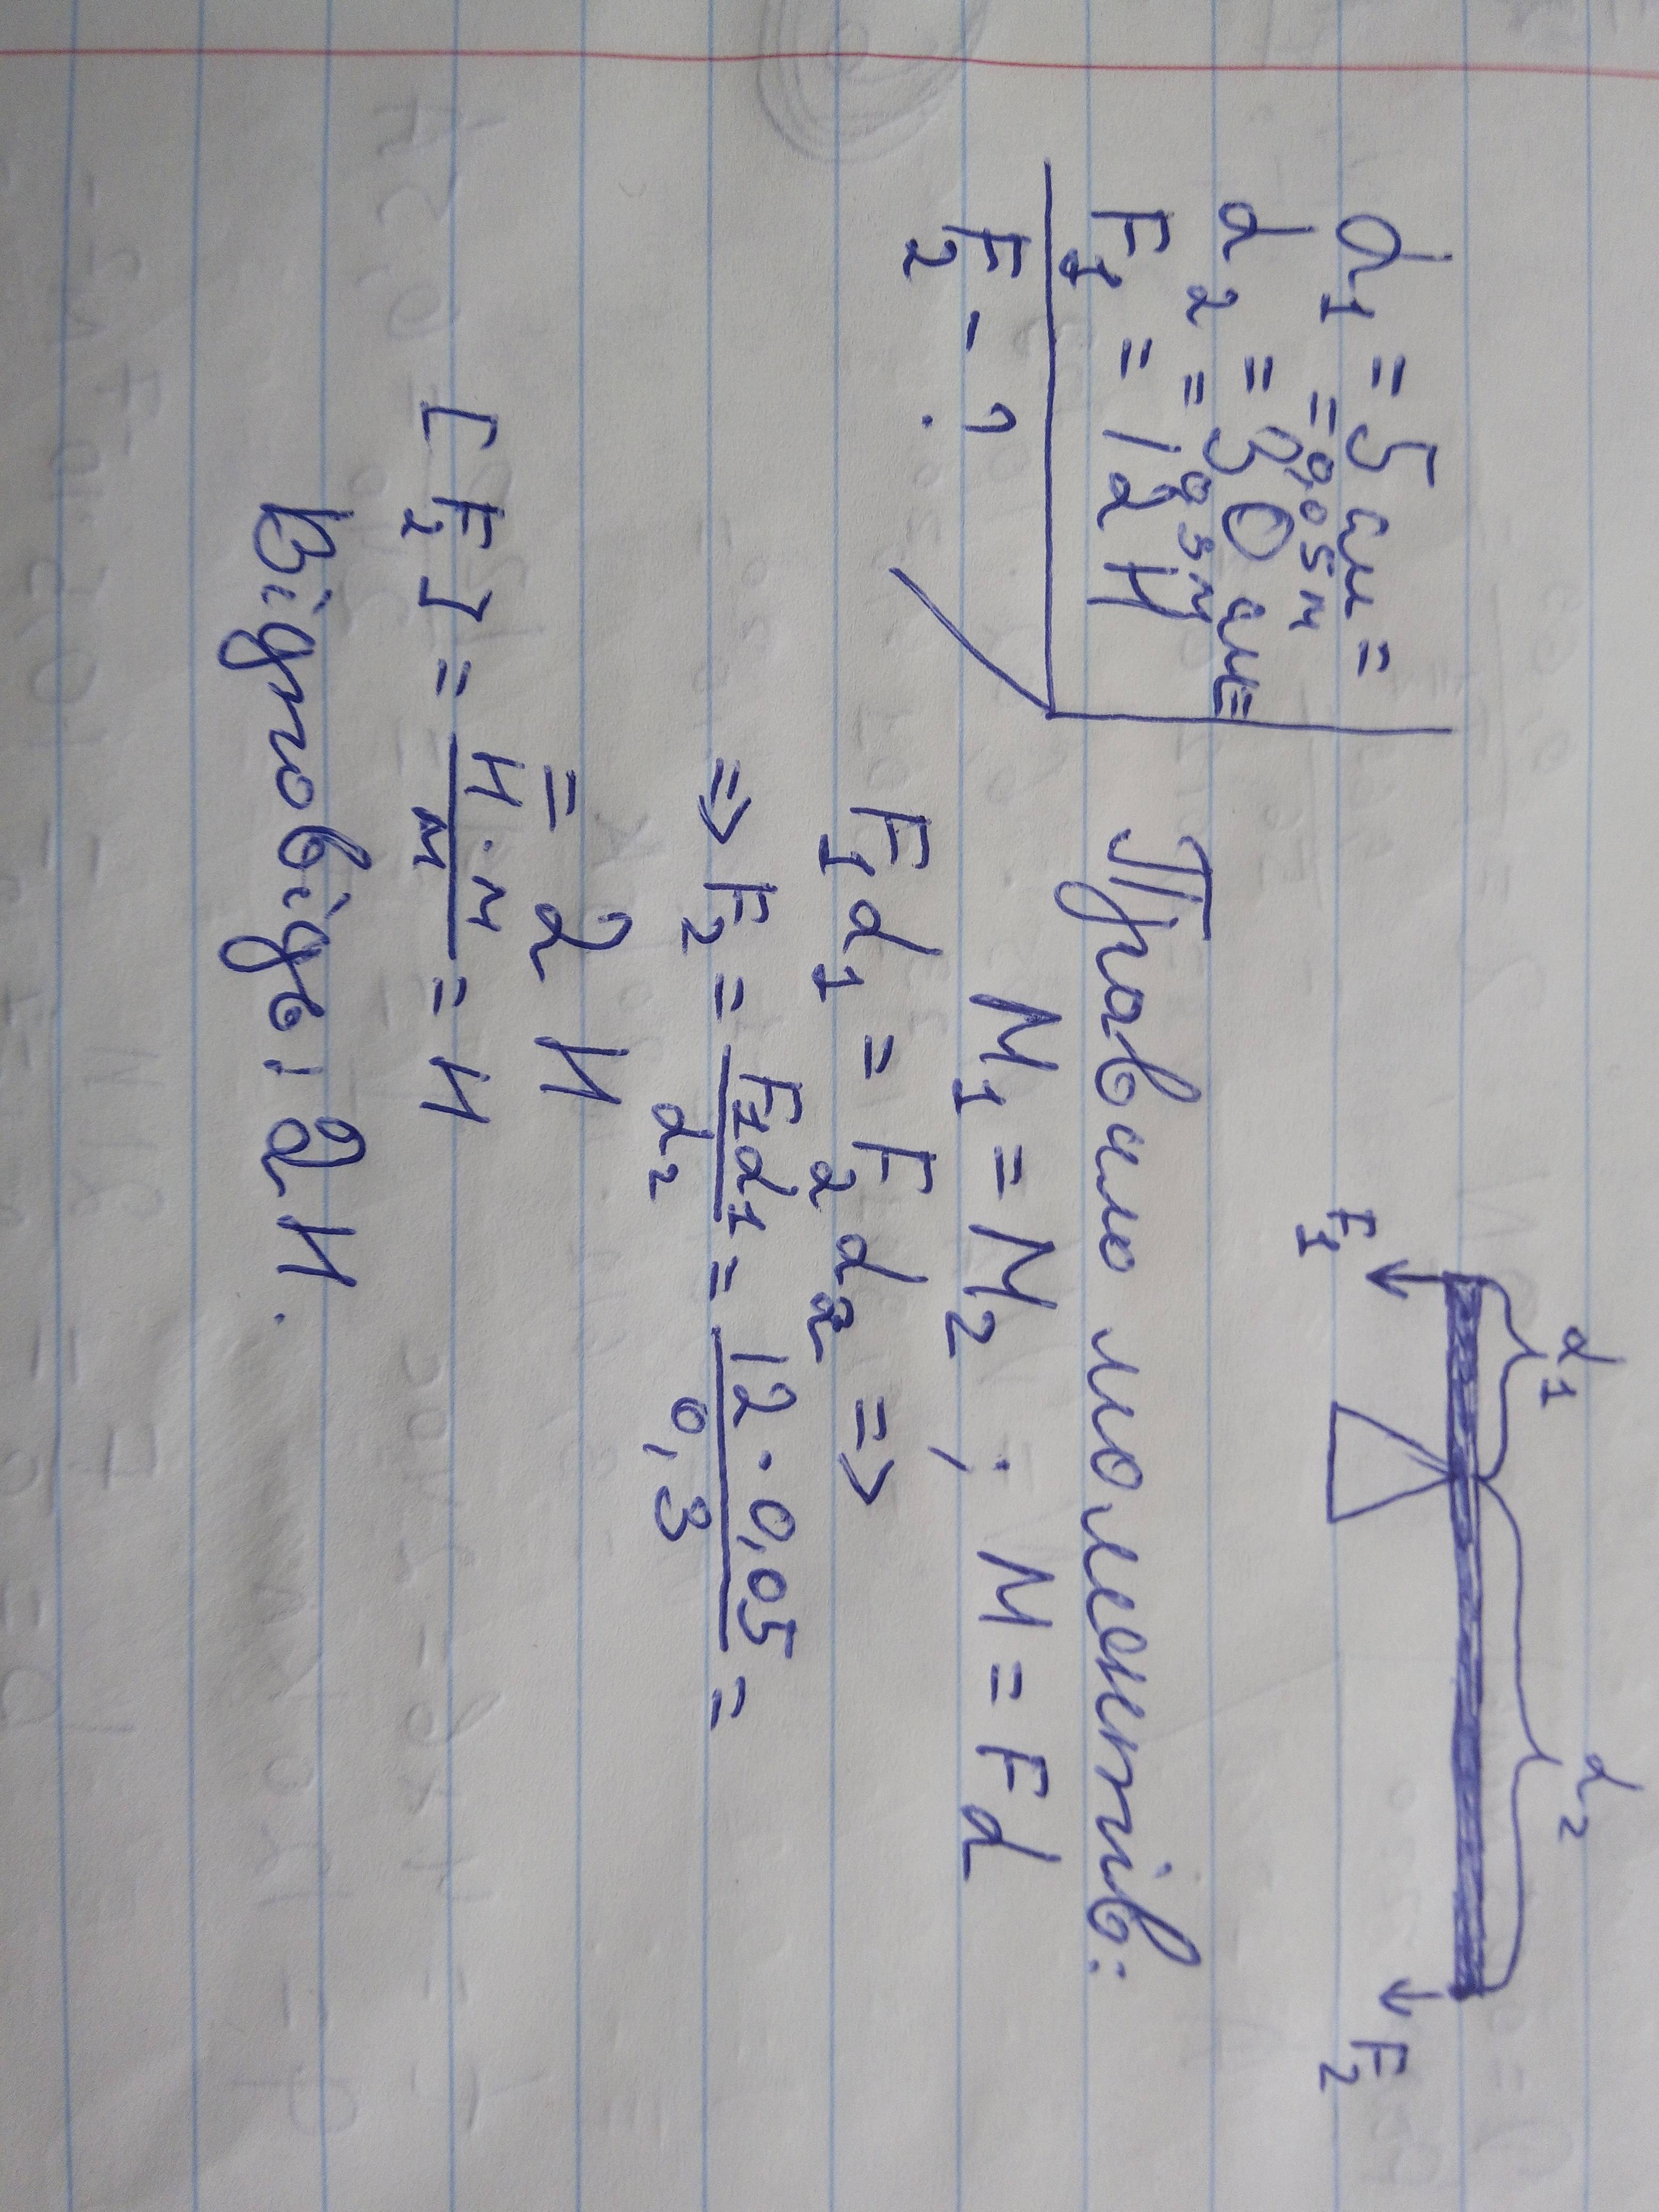 d₁ = 5 см =
= 0,05 м
d₂ = 30 см =
= 0,3 м
F₁ = 12 Н
F₂ - ?
d₁ d₂
F₁ F₂
Правило моментів:
M₁ = M₂ ; M = Fd
F₁d₁ = F₂d₂ =>
=> F₂ = F₁d₁/d₂ = 12·0,05/0,3 =
= 2 Н
[F₂] = Н·м/м = Н
Відповідь: 2 Н.